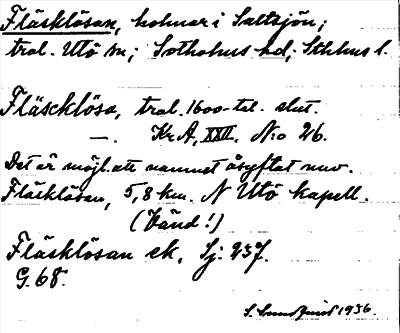 Fläsklösan, holmar i Saltsjön;
tral. Utö sn; Sotholms hd; Sthlms l.
Fläscklösa, tral. 1600-tal. slut.
—. Kr. A, XXII. N:o 26.
Det är möjl. att namnet åsyftat nuv.
Fläsklösan, 5,8 km. N Utö kapell.
(Vänd!)
Fläsklösan ek, Sj: 237.
G. 68.
S. Lundqvist 1936.